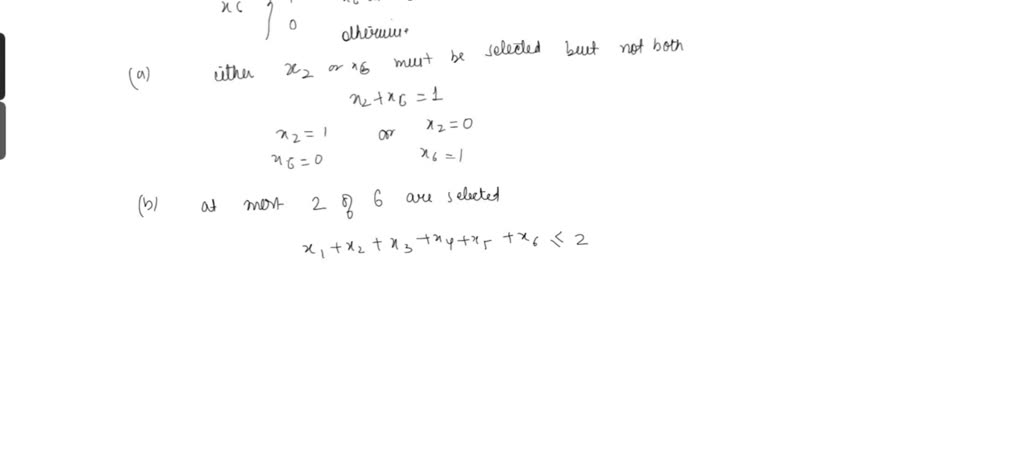 x6
0 otherwise
(a) either x2 or x6 must be selected but not both
x2+x6=1
x2=1 or x2=0
x6=0 x6=1
(b) at most 2 of 6 are selected
x1+x2+x3+x4+x5+x6≤2